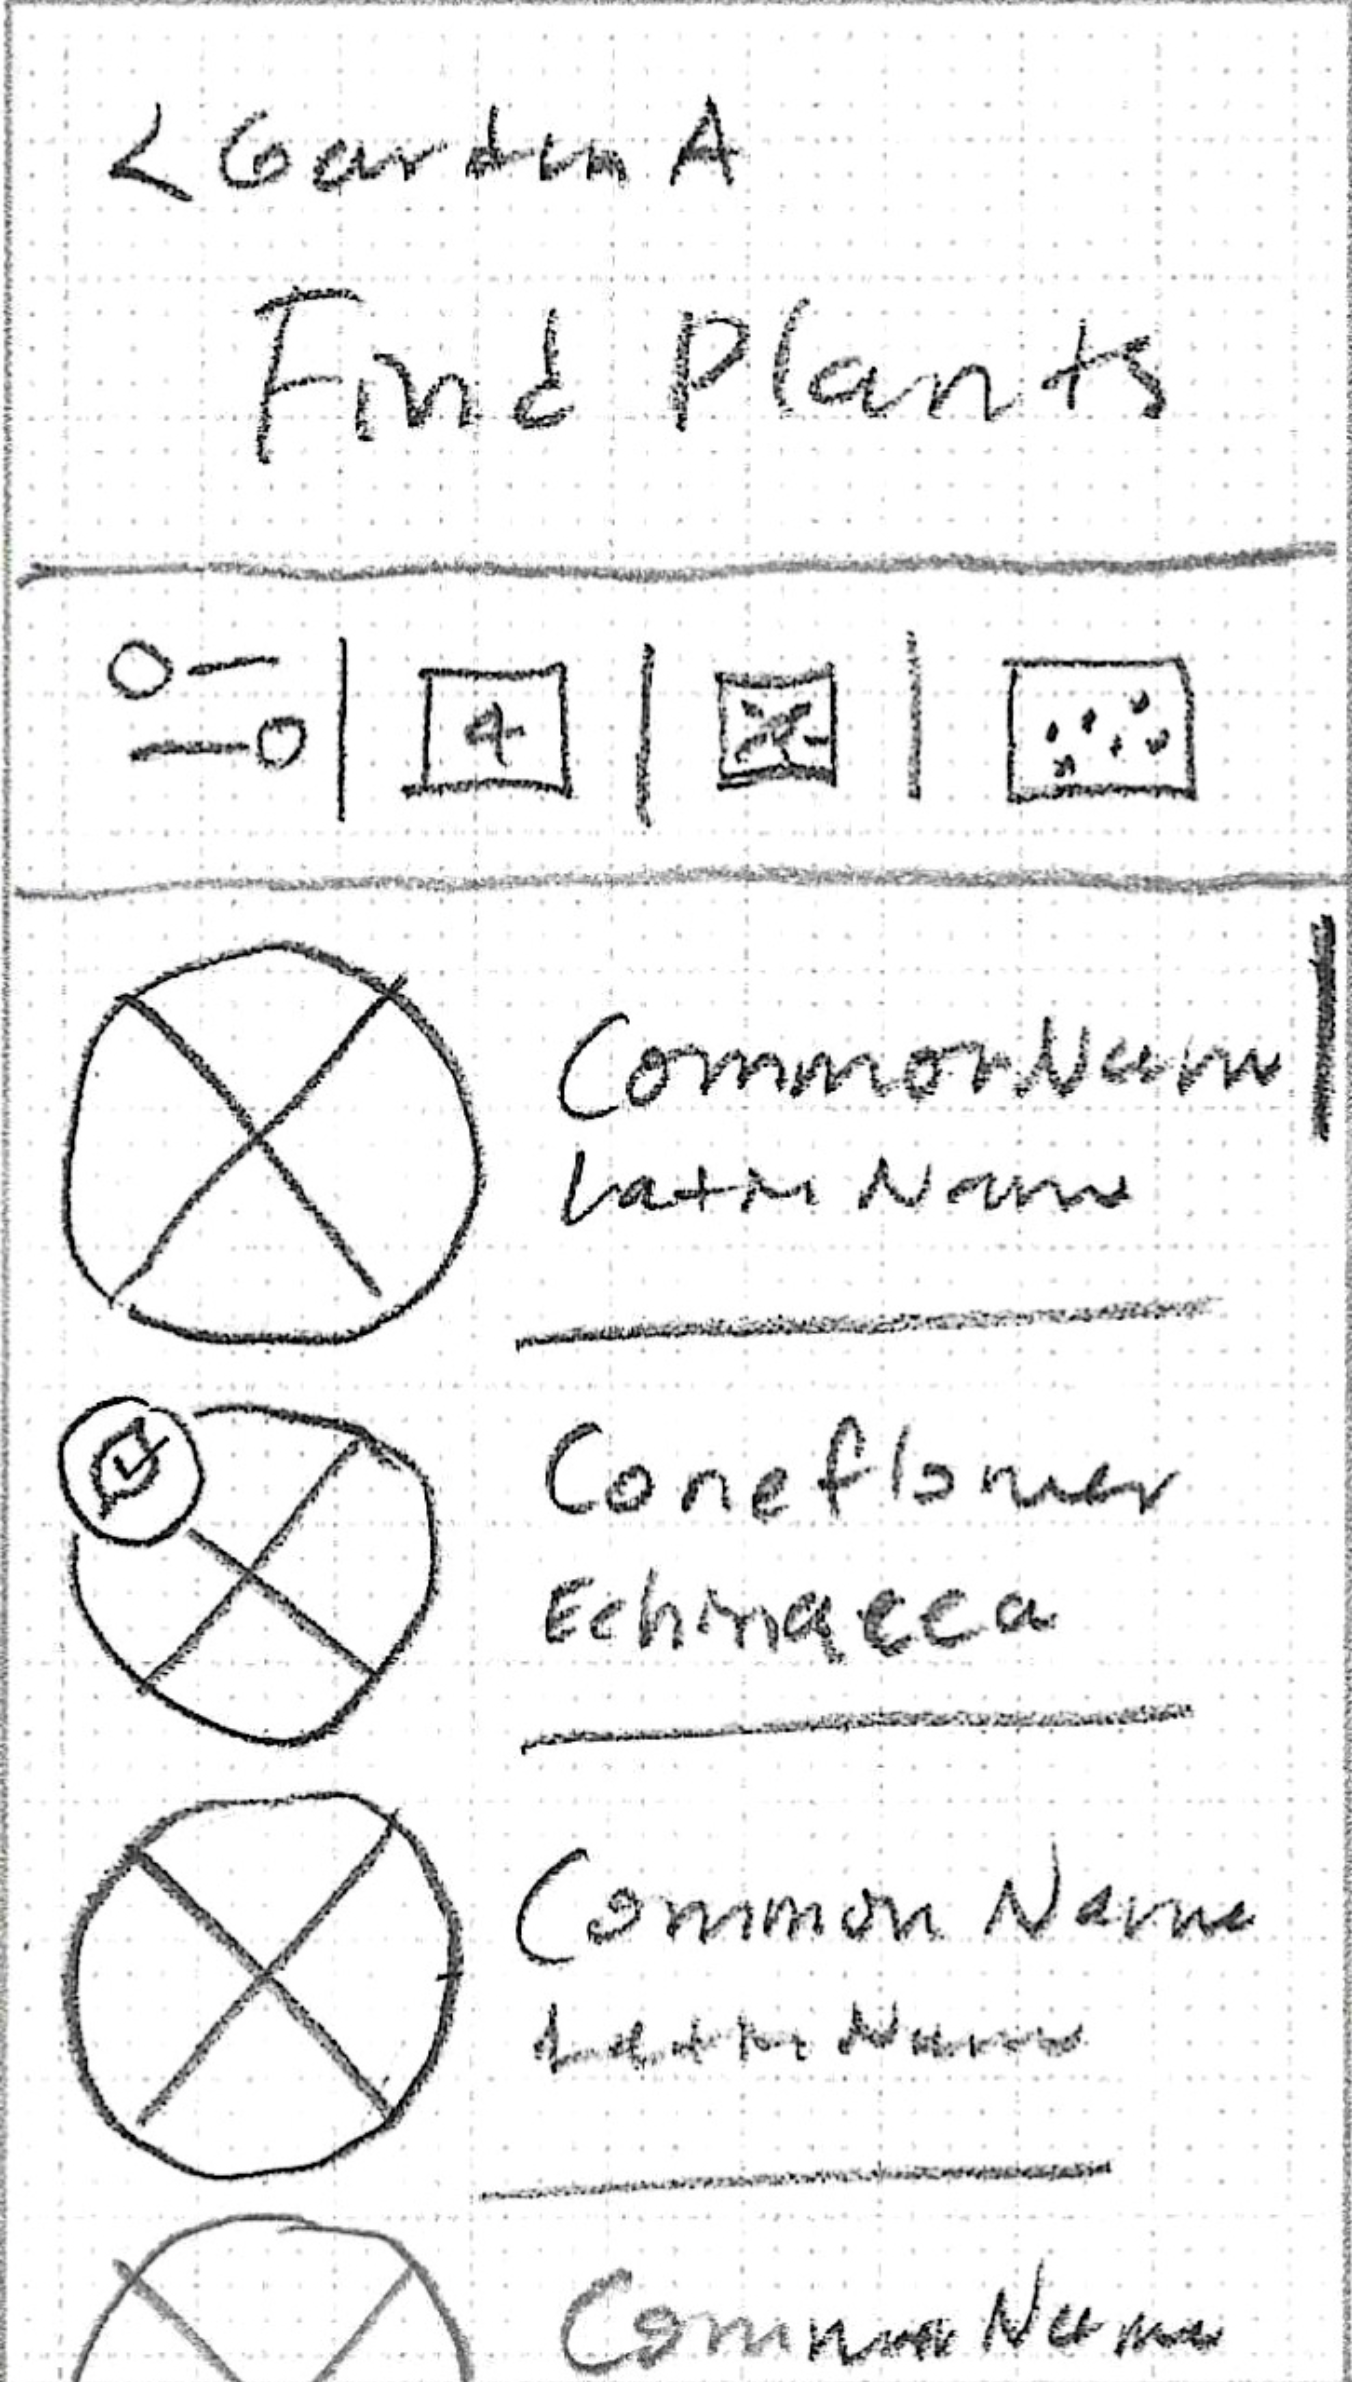 < Garden A
Find Plants
Common Name
Latin Name
Coneflower
Echinacea
Common Name
Latin Name
Common Name